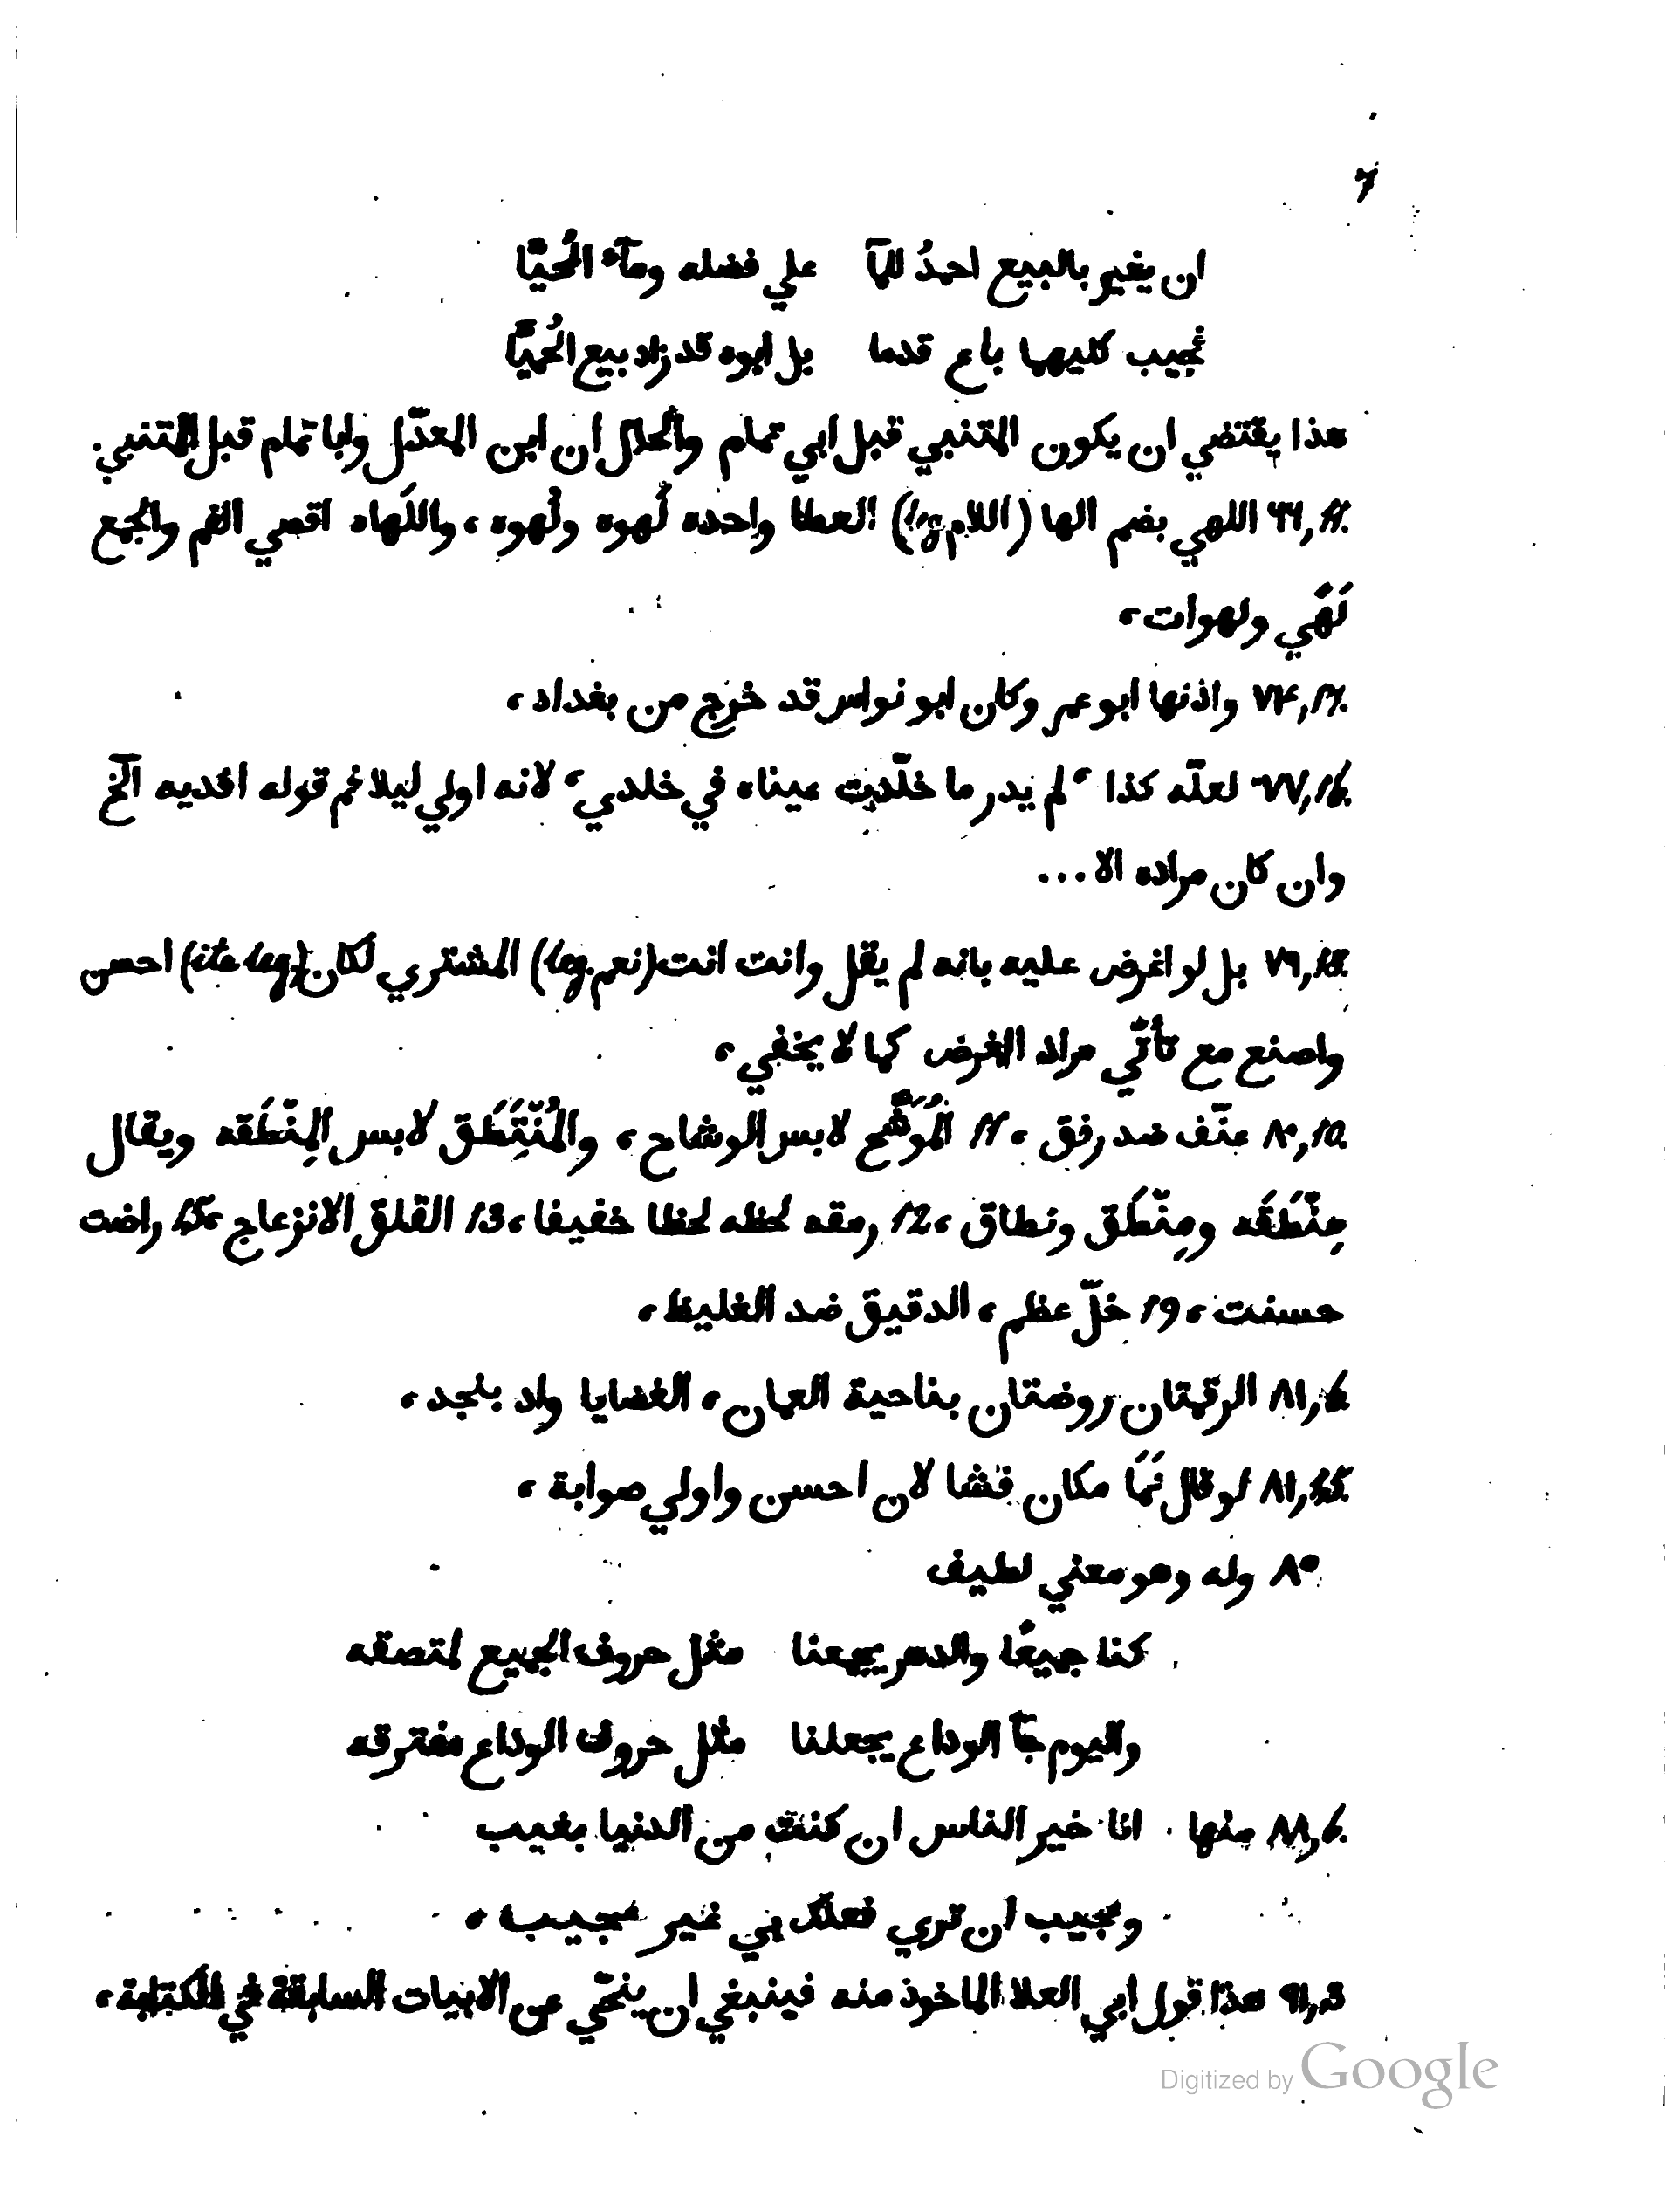 ٦
ان يغير بالبيع احمدُ للمآ علي فضله ومآء المُحيّا
فجيب كليهما باع قدما بل ابوه قد زاد بيع الحُميّا
هذا يقتضي ان يكون المتنبي قبل ابي تمام والحال ان ابن المعذّل وابا تمام قبل المتنبي.
٦٦,11. اللهي بضم الها (اللام leg.) العطا واحده لُهوه ولُهوه، واللَهاه اقصي الفم والجمع
لَهَي ولهوات،
واذنها ابو عمر وكان ابو نواس قد خرج من بغداد،
٧٧,16. لعلّه كذا "لم يدر ما خلّدت عيناه في خلدي" لانه اولي ليلائم قوله افديه الخ
وان كان مراده الا...
٧٩,18. بل لو اغرض عليه بانه لم يقل وانت انت (نعم leg.) المشتري لكان (ita leg.) احسن
واصنع مع تأتّي مراد الغرض كما لا يخفي،
٨٠,10. عنّف ضد رفق، 11 المُوَشَّح لابس الوشاح، والمُنْتَطَق لابس المِنْطَقه ويقال
مِنْطَقَه ومِنْطَق ونطاق، 12 رمقه لحظه لحظا خفيفا، 13 القلق الانزعاج، 15 راضت
حسنت، 19 جلّ عظم، الدقيق ضد الغليظ،
٨١,6. الرقمتان روضتان بناحية العمان، الغضايا واد بنجد،
٨١,15. لو قال نَمَا مكان فشا لان احسن واولي صوابة،
٨٥ وله وهو معني لطيف
كنا جميعًا والدهر يجمعنا مثل حروف الجميع لمتصقه
واليوم جآ الوداع يجعلنا مثل حروف الوداع مفترقه
٨٨,6. منها انا خير الناس ان كنت من الدنيا بغيب
وعجيب ان تري فعلك بي غير عجيب،
٩١,3 هذا قول ابي العلا الماخوذ منه فينبغي ان ينحّي عن الابيات السابقة في الكتابة،
Digitized by Google